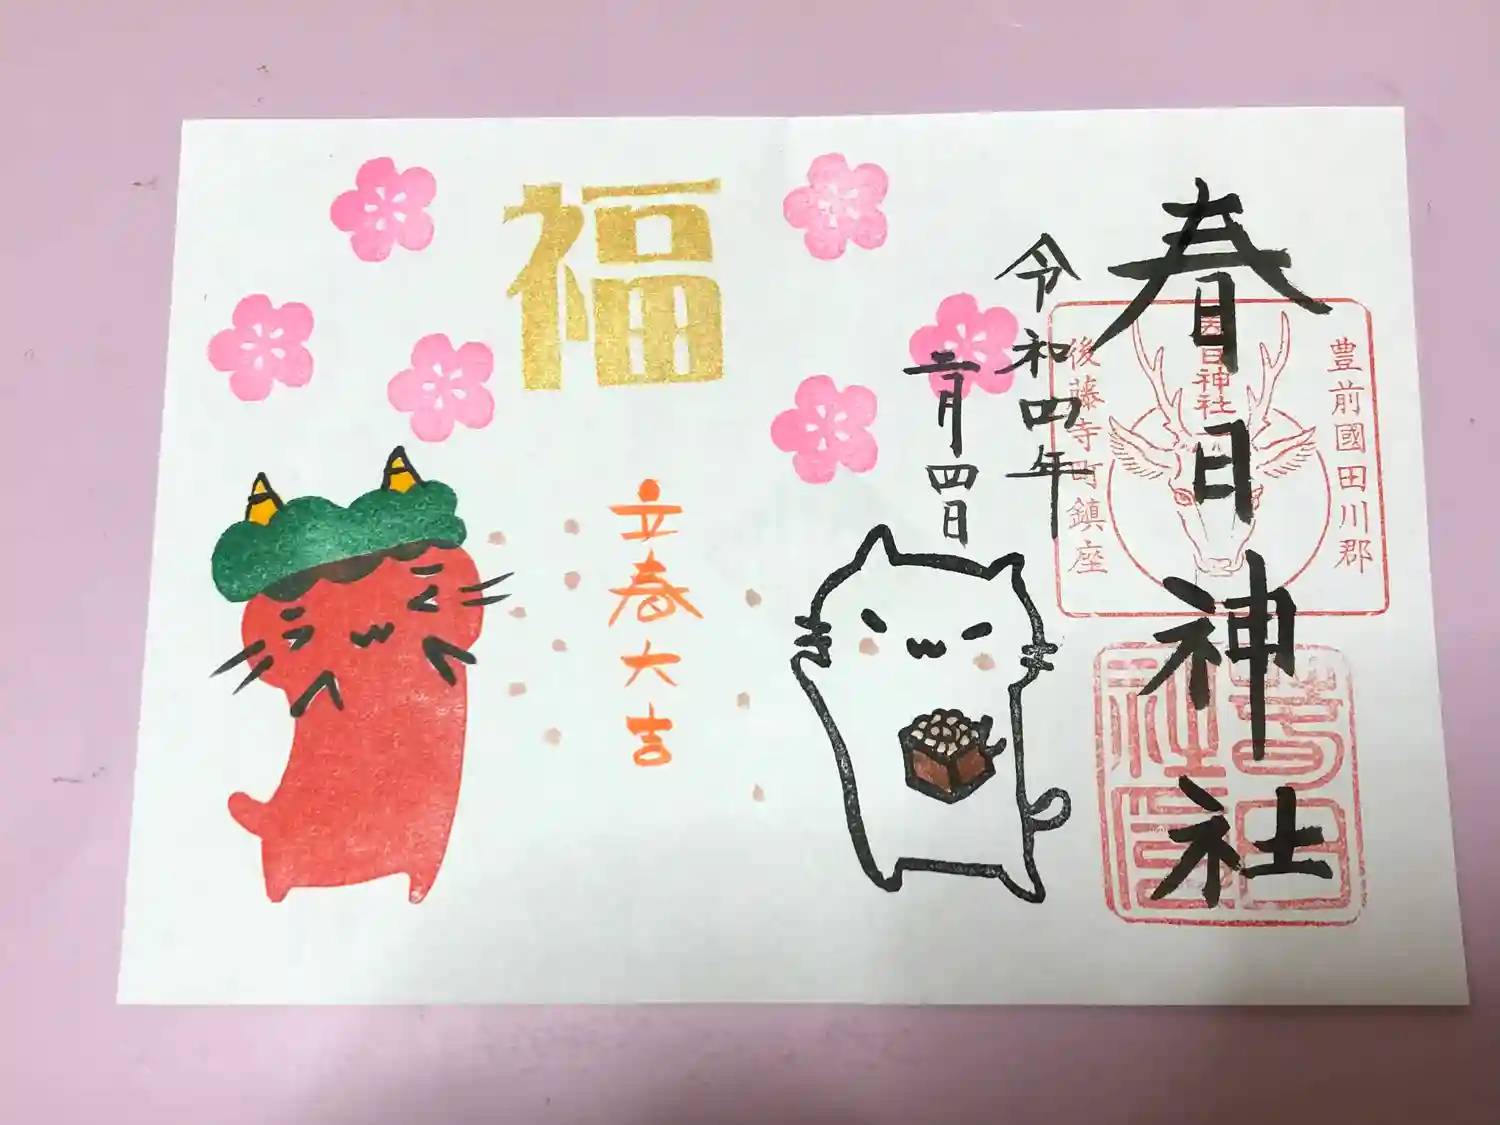 春日神社
豊前國田川郡
春日神社
後藤寺町鎮座
令和四年
二月四日
福
立春大吉